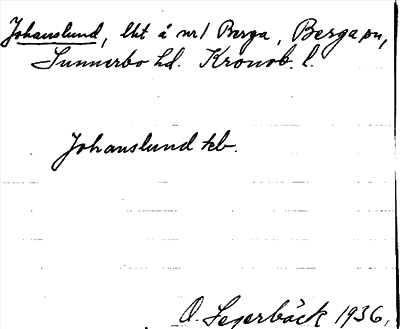 Johanslund, lht å nr 1 Berga, Berga sn,
Sunnerbo hd. Kronob. l.
Johanslund tkb.
O. Segerbäck 1936.